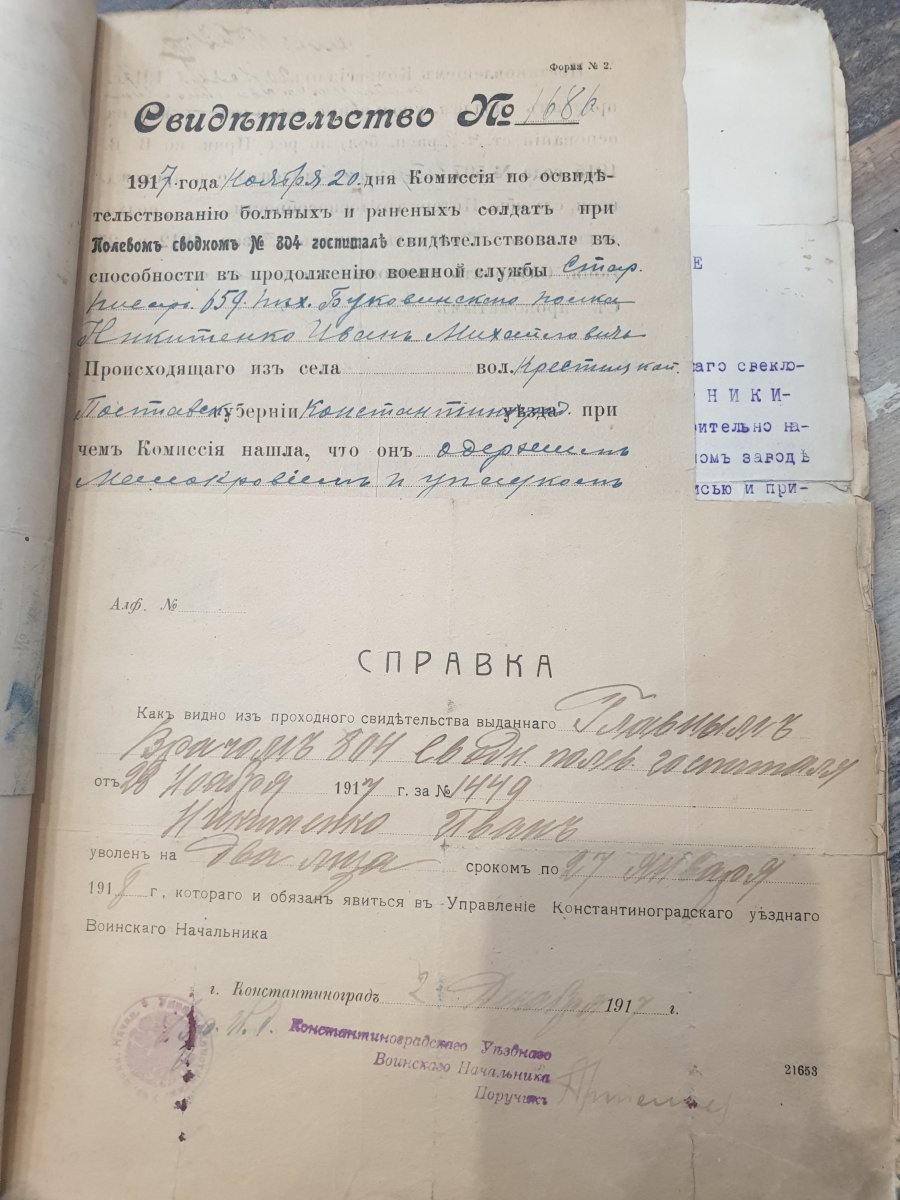 Форма № 2.
Свидѣтельство № 1686
1917 года Ноября 20 дня Комиссія по освидѣ-
тельствованію больныхъ и раненыхъ солдатъ при
Полевомъ сводномъ № 804 госпиталѣ свидѣтельствовала въ
способности къ продолженію военной службы Стар.
писарь 659. пѣх. Буковинскаго полка
Никитенко Иванъ Михайловичъ
Происходящаго изъ села вол. Крестищ
губерніи Константиноград. уѣзда при
чемъ Комиссія нашла, что онъ одержимъ
Малокровіемъ и упадкомъ
Е
наго свекло-
НИКИ-
рительно на-
номъ заводѣ
исью и при-
Алф. №
СПРАВКА
Какъ видно изъ проходного свидѣтельства выданнаго Главнымъ
Врачомъ 804 сводн. полев. госпиталя
отъ 28 Ноября 1917 г. за № 1449
Никитенко Иванъ
уволенъ на два срокомъ по 27 Января
1918 г, котораго и обязан явиться въ Управленіе Константиноградскаго уѣзднаго
Воинскаго Начальника
г. Константиноградъ 2 Декабря 1917 г.
Константиноградскаго Уѣзднаго
Воинскаго Начальника
Поручикъ
21653